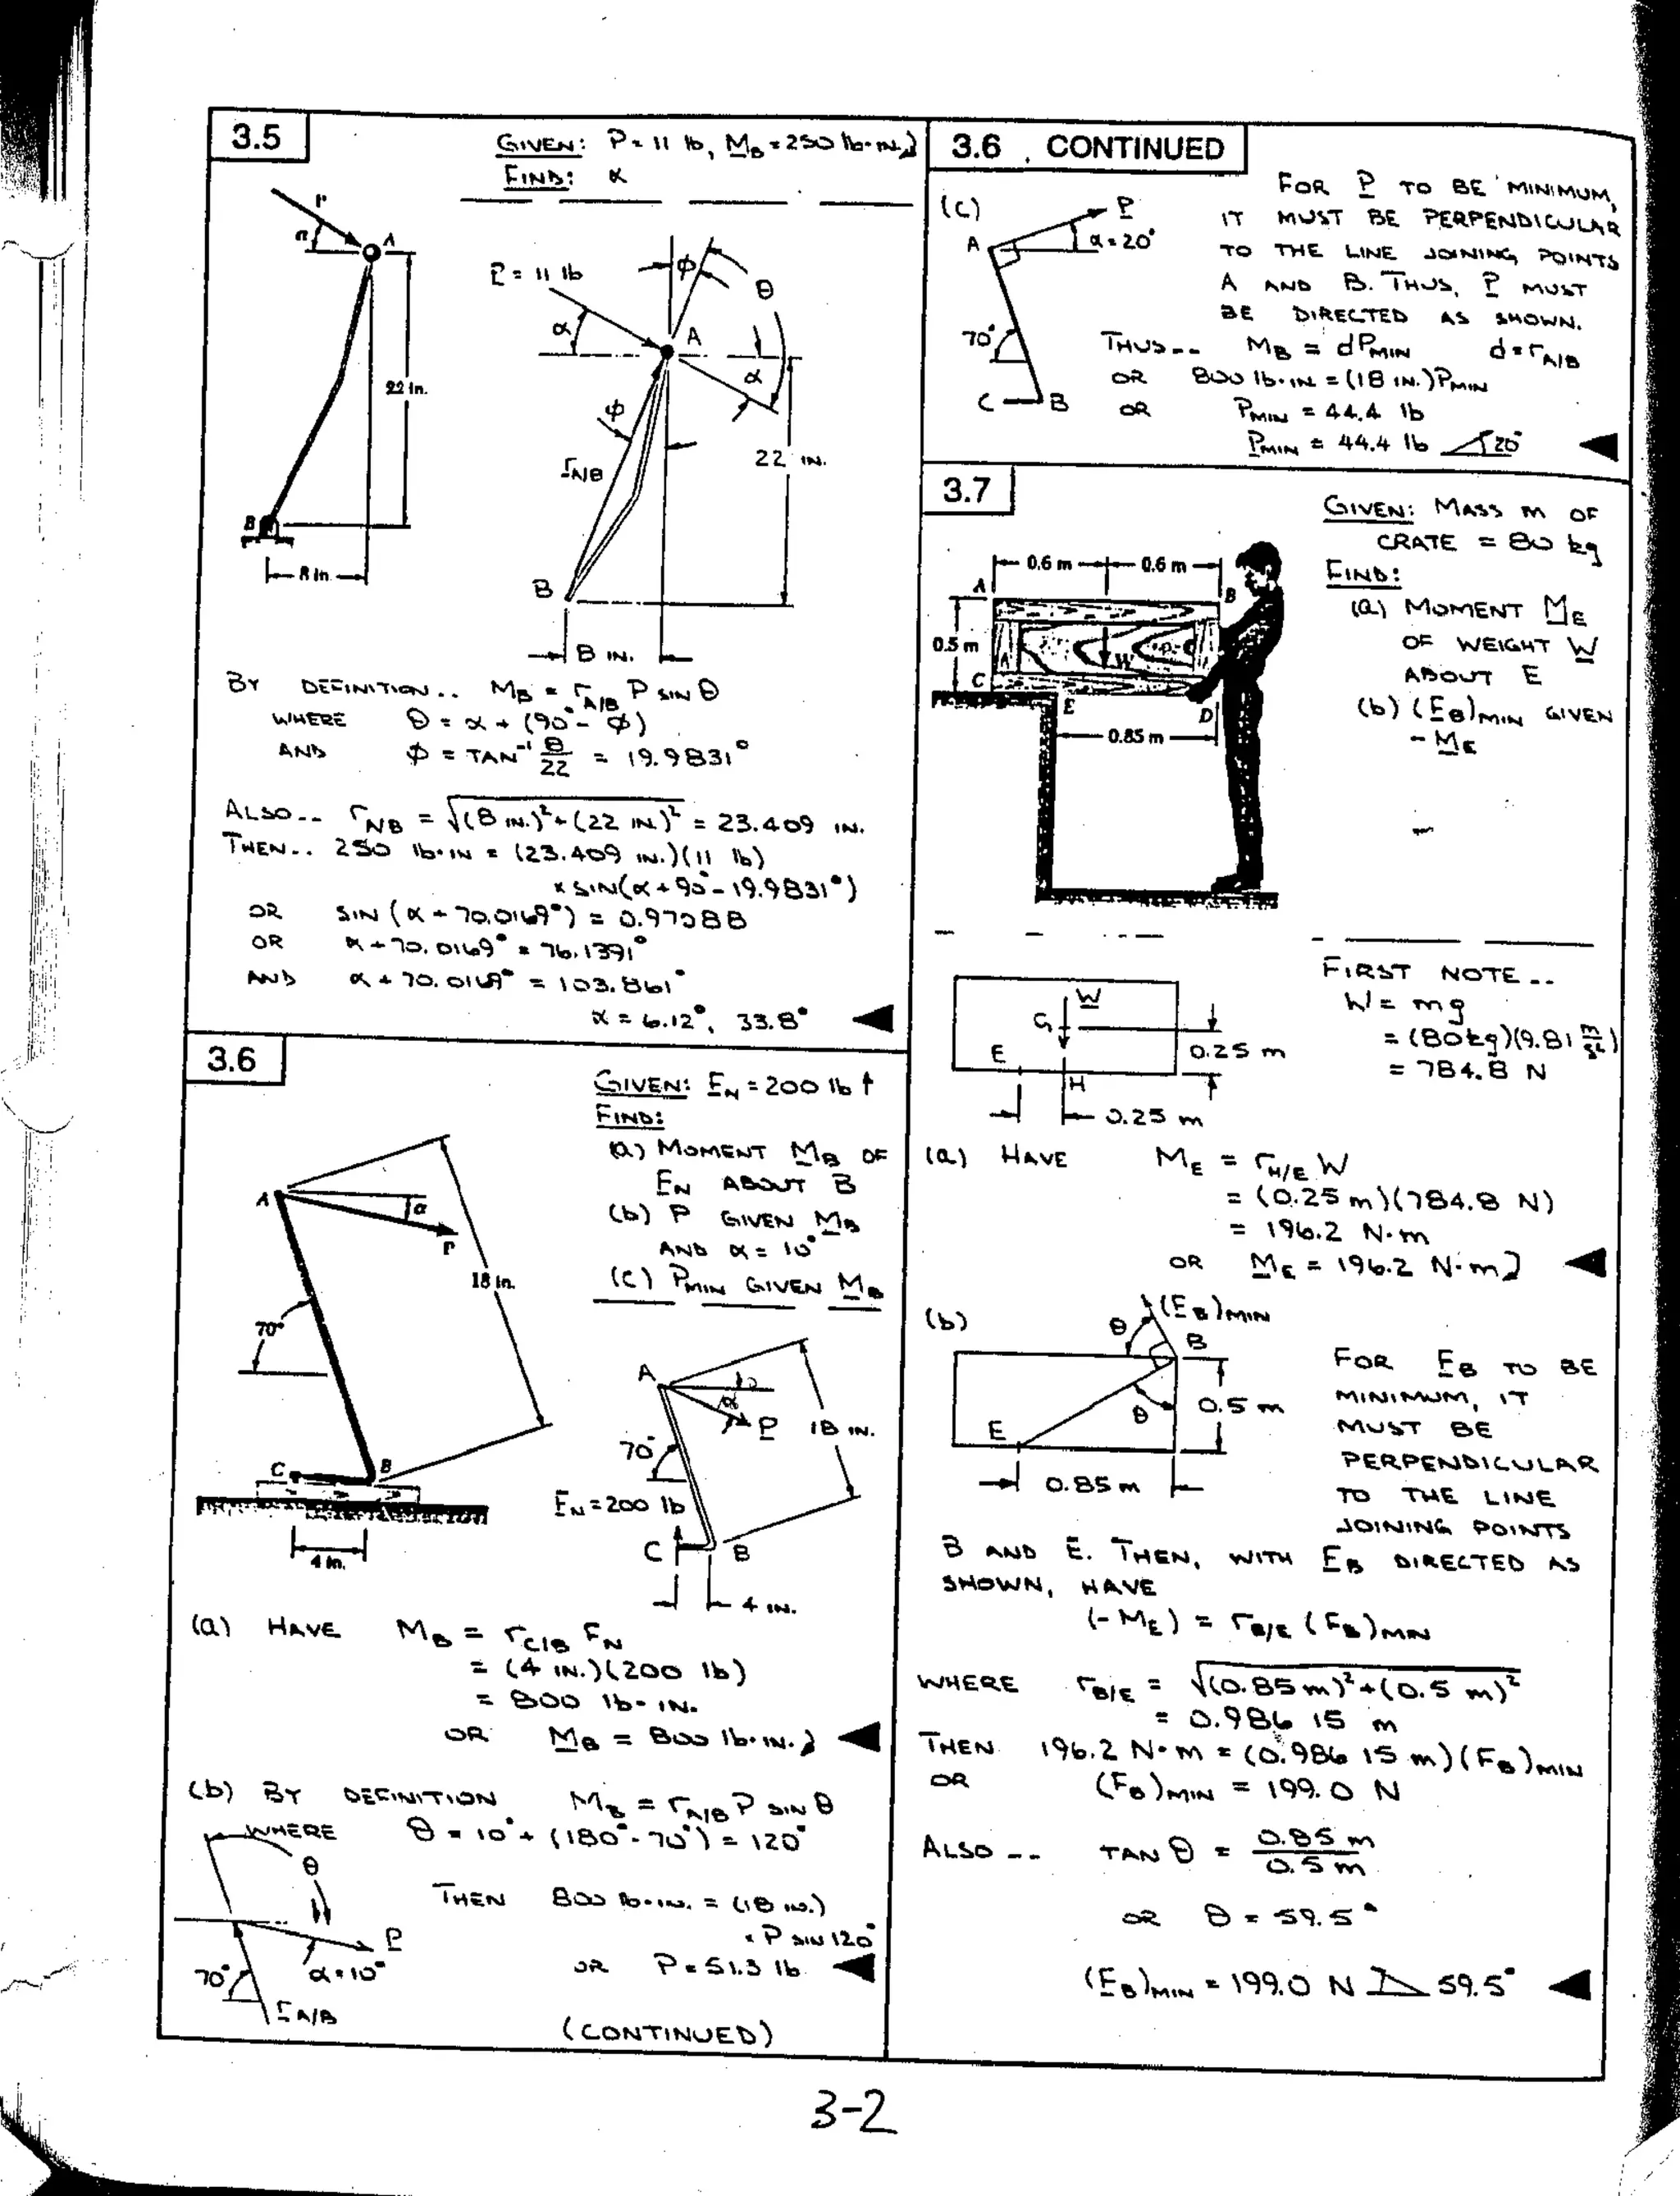 3.5
GIVEN: P = 11 lb, M_B = 250 lb·IN.
FIND: α
P
α
A
22 in.
B
8 in.
P = 11 lb
φ
θ
α
A
α
φ
r_A/B
22 IN.
B
8 IN.
BY DEFINITION.. M_B = r_A/B P SIN θ
WHERE θ = α + (90° - φ)
AND φ = TAN⁻¹ 8/22 = 19.9831°
ALSO-- r_A/B = √((8 IN.)² + (22 IN.)²) = 23.409 IN.
THEN.. 250 lb·IN = (23.409 IN.)(11 lb)
x SIN(α + 90° - 19.9831°)
OR SIN (α + 70.0169°) = 0.97088
OR α + 70.0169° = 76.1391°
AND α + 70.0169° = 103.861°
α = 6.12°, 33.8°
3.6
GIVEN: F_N = 200 lb ↑
FIND:
(a) MOMENT M_B OF
F_N ABOUT B
(b) P GIVEN M_B
AND α = 10°
(c) P_MIN GIVEN M_B
A
α
P
18 in.
70°
C
B
4 in.
A
α
P
18 IN.
70°
F_N = 200 lb
C
B
4 IN.
(a) HAVE M_B = r_C/B F_N
= (4 IN.)(200 lb)
= 800 lb·IN.
OR M_B = 800 lb·IN.
(b) BY DEFINITION M_B = r_A/B P SIN θ
WHERE θ = 10° + (180° - 70°) = 120°
θ
THEN 800 lb·IN. = (18 IN.)
x P SIN 120°
P
OR P = 51.3 lb
70°
α = 10°
r_A/B
(CONTINUED)
3.6 CONTINUED
(c)
P
A
α = 20°
70°
C
B
FOR P TO BE MINIMUM,
IT MUST BE PERPENDICULAR
TO THE LINE JOINING POINTS
A AND B. THUS, P MUST
BE DIRECTED AS SHOWN.
THUS-- M_B = d P_MIN d = r_A/B
OR 800 lb·IN. = (18 IN.) P_MIN
OR P_MIN = 44.4 lb
P_MIN = 44.4 lb 20°
3.7
GIVEN: MASS m OF
CRATE = 80 kg
FIND:
(a) MOMENT M_E
OF WEIGHT W
ABOUT E
(b) (F_B)_MIN GIVEN
- M_E
0.6 m
0.6 m
A
B
0.5 m
W
C
E
D
0.85 m
FIRST NOTE--
W = mg
= (80 kg)(9.81 m/s²)
= 784.8 N
W
G
E
0.25 m
H
0.25 m
(a) HAVE M_E = r_H/E W
= (0.25 m)(784.8 N)
= 196.2 N·m
OR M_E = 196.2 N·m
(b)
(F_B)_MIN
θ
B
0.5 m
θ
E
0.85 m
FOR F_B TO BE
MINIMUM, IT
MUST BE
PERPENDICULAR
TO THE LINE
JOINING POINTS
B AND E. THEN, WITH F_B DIRECTED AS
SHOWN, HAVE
(-M_E) = r_B/E (F_B)_MIN
WHERE r_B/E = √((0.85 m)² + (0.5 m)²)
= 0.986 15 m
THEN 196.2 N·m = (0.986 15 m)(F_B)_MIN
OR (F_B)_MIN = 199.0 N
ALSO -- TAN θ = 0.85 m/0.5 m
OR θ = 59.5°
(F_B)_MIN = 199.0 N 59.5°
3-2